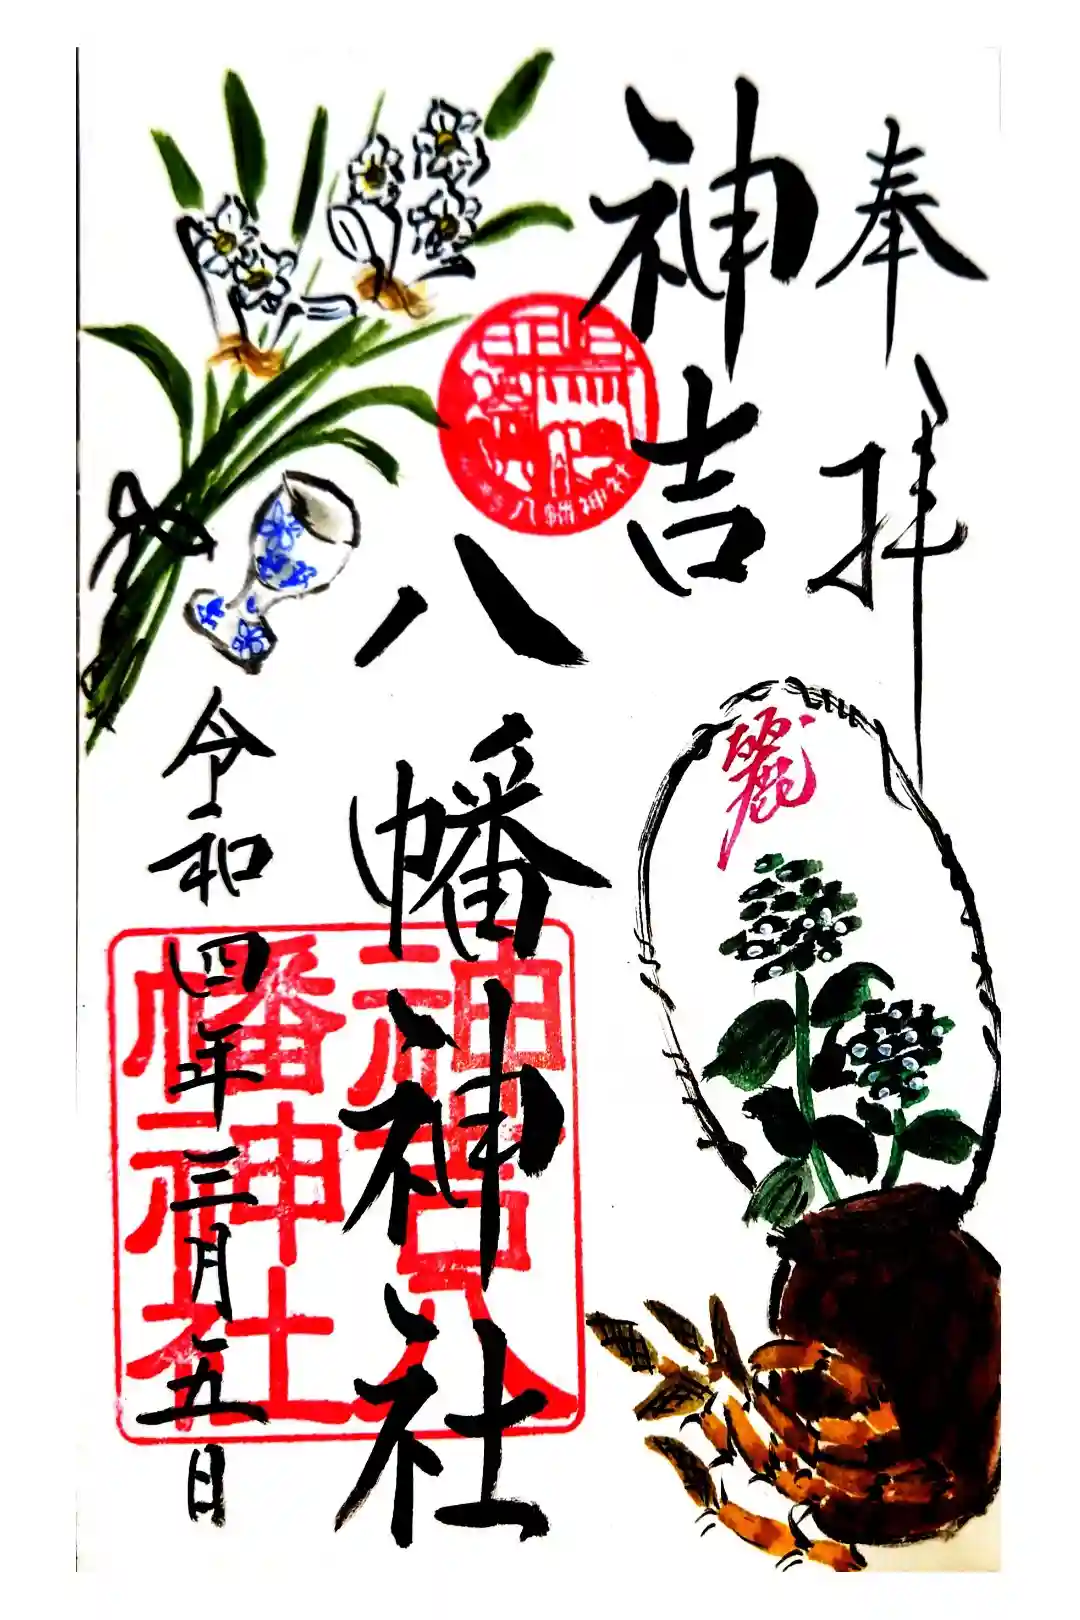 奉拝
神吉
八幡神社
麗
令和四年三月五日
八幡神社
神吉八
幡神社